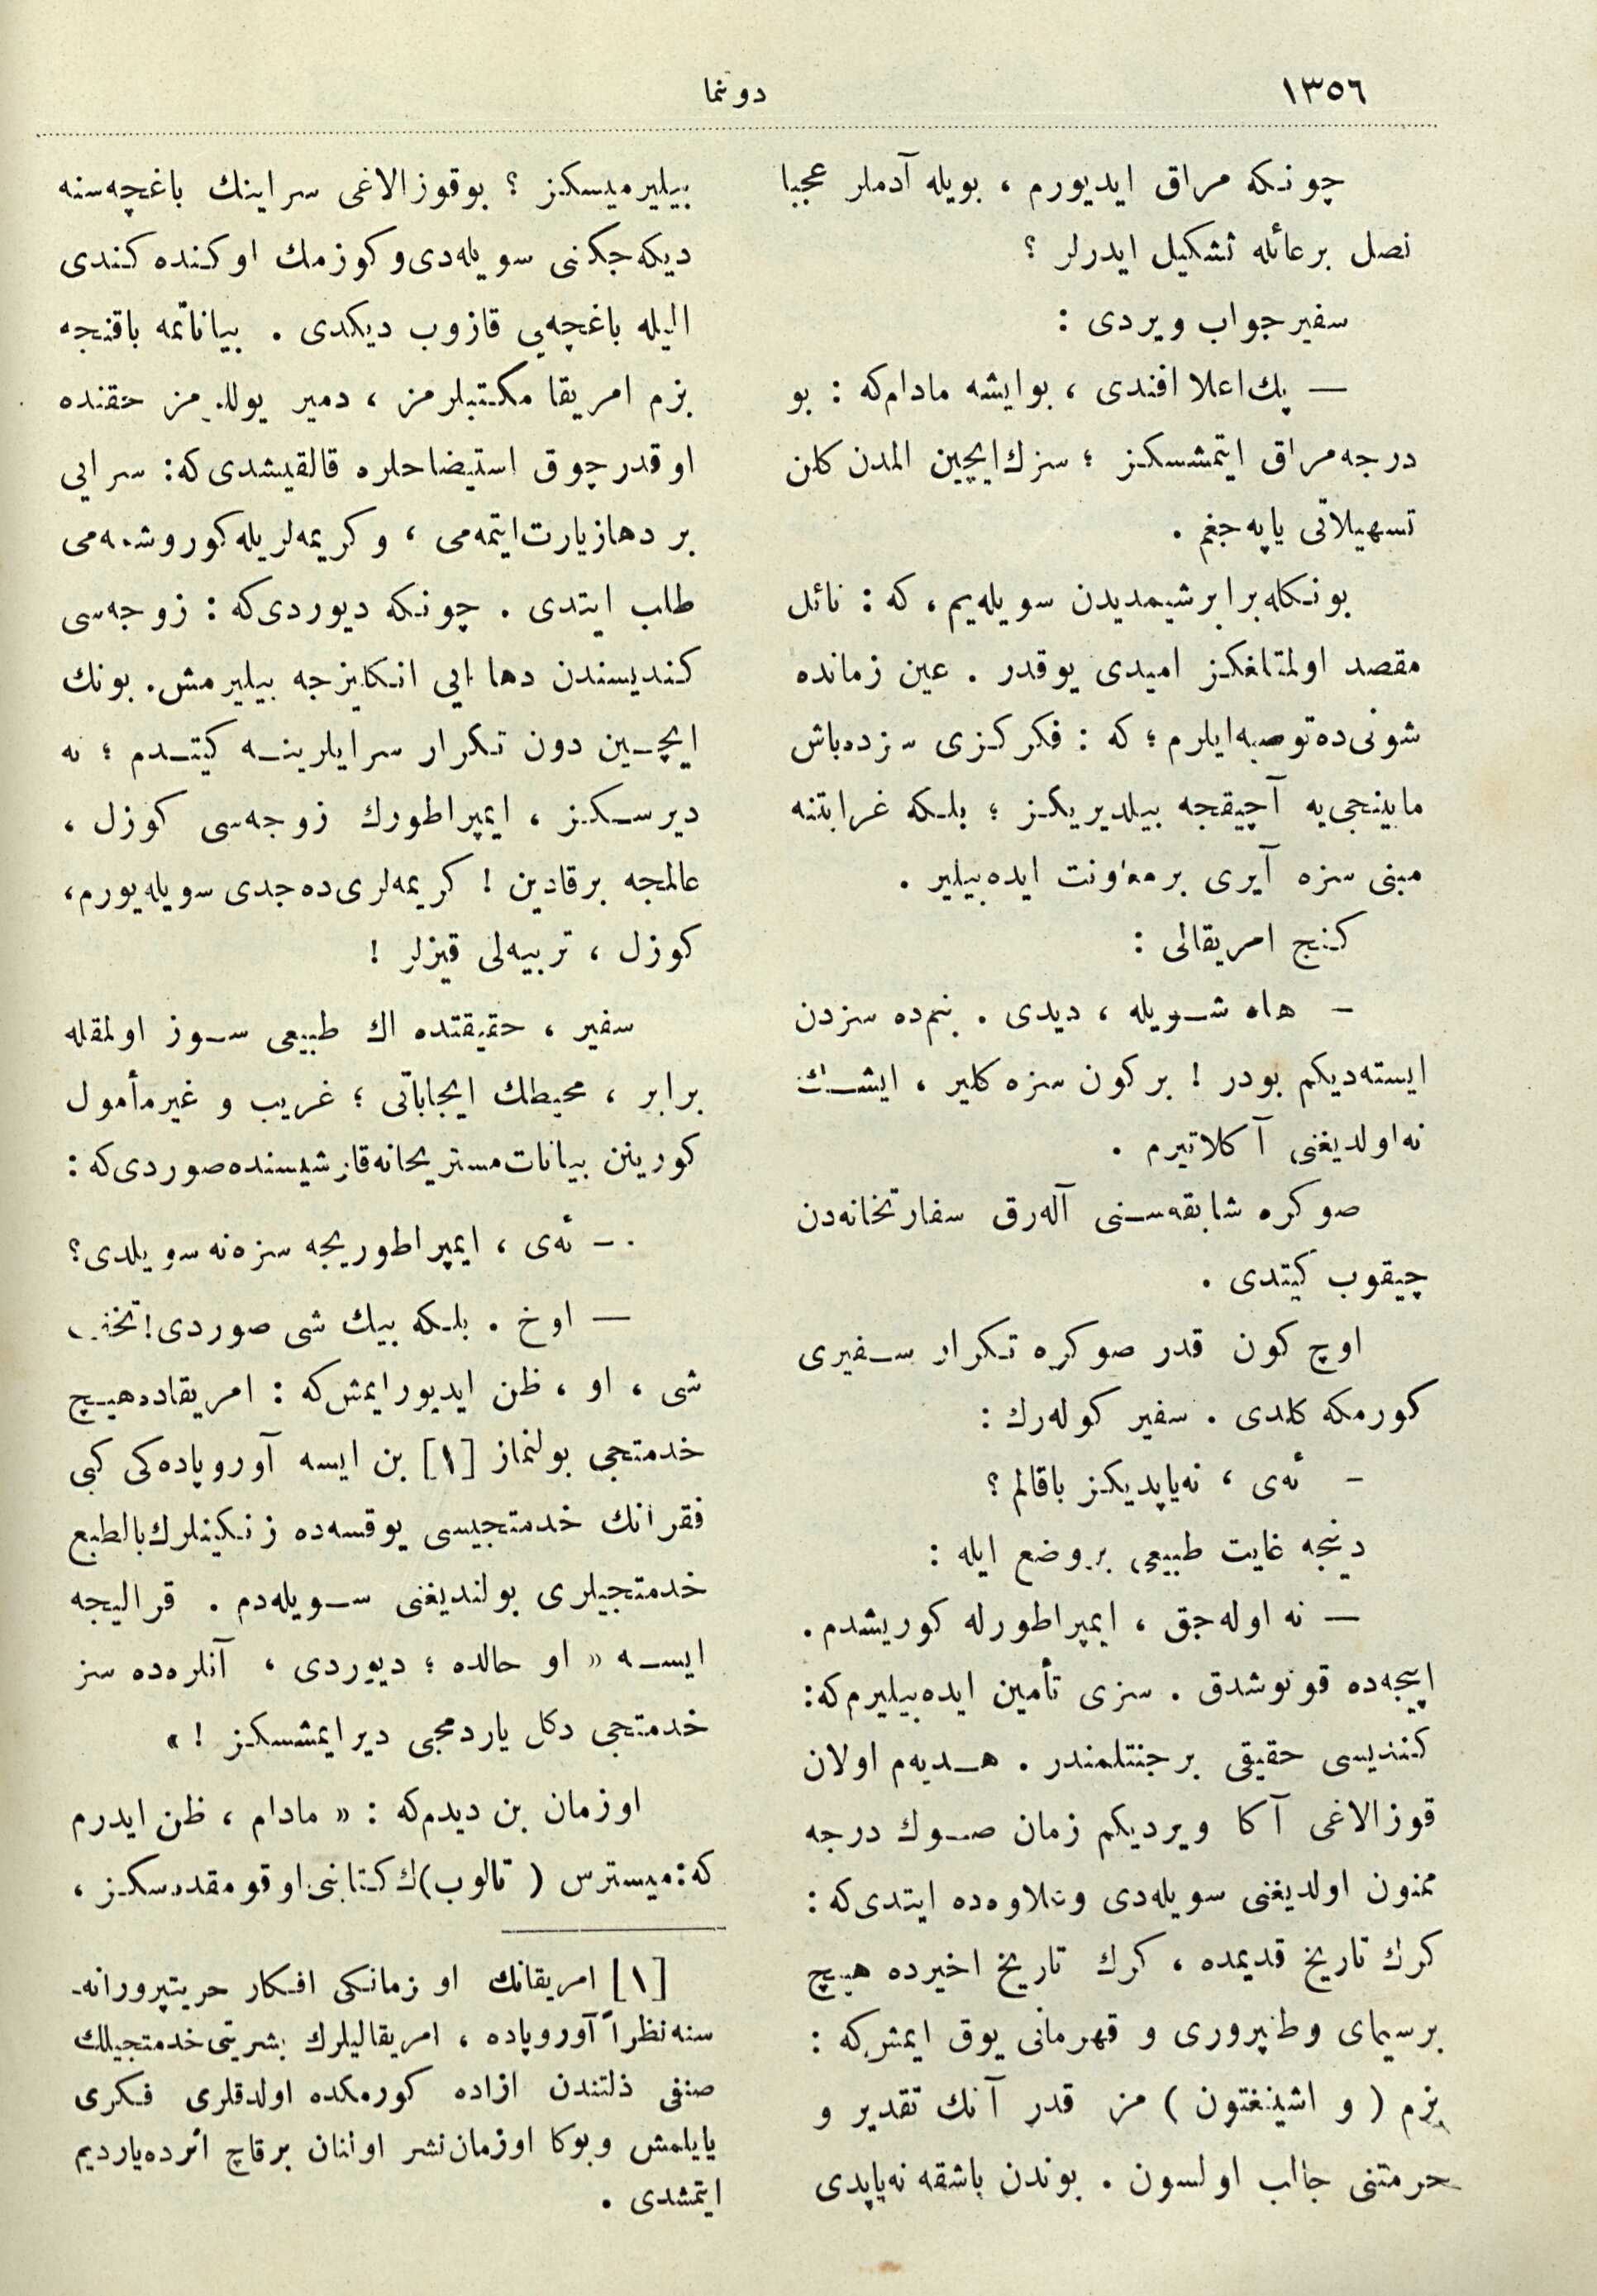 ١٣٥٦
دونما
چونكه مراق ايديورم ، بويله آدملر عجبا
نصل بر عائله تشكيل ايدرلر ؟
سفير جواب ويردى :
— پك اعلا افندى ، بوايشه مادام كه : بو
درجه مراق ايتمشسكز ؛ سزك ايچين المدن كلن
تسهيلاتى ياپه جغم .
بونكله برابر شيمديدن سويله يم ، كه : نائل
مقصد اولمقلغكز اميدى يوقدر . عين زمانده
شونى ده توصيه ايلرم ؛ كه : فكركزى سزده باش
مابينجى يه آچيقجه بيلديريكز ؛ بلكه غرابتنه
مبنى سزه آيرى بر معاونت ايده بيلير .
كنج امريقالى :
— هاه شويله ، ديدى . بنم ده سزدن
ايسته ديكم بودر ! بر كون سزه كلير ، ايشك
نه اولديغنى آكلاتيرم .
صوكره شابقه سنى آله رق سفارتخانه دن
چيقوب كيتدى .
اوچ كون قدر صوكره تكرار سفيرى
كورمكه كلدى . سفير كوله رك :
— ئه ى ، نه ياپديكز باقالم ؟
دينجه غايت طبيعى بر وضع ايله :
— نه اوله جق ، ايمپراطورله كوريشدم .
ايیجه ده قونوشدق . سزى تأمين ايده بيليرم كه :
كنديسى حقيقى بر جنتلمندر . هديه م اولان
قوز الاغى آكا ويرديكم زمان صوك درجه
ممنون اولديغنى سويله دى و علاوه ده ايتدى كه :
كرك تاريخ قديمده ، كرك تاريخ اخيرده هيچ
بر سيماى وطنپرورى و قهرمانى يوق ايمش كه :
بزم ( واشينغتون ) مز قدر آنك تقدير و
حرمتنى جالب اولسون . بوندن باشقه نه ياپدى
بيلير ميسكز ؟ بو قوز الاغى سراينك باغچه سنه
ديكه جكنى سويله دى و كوزمك اوكنده كندى
اليله باغچه يى قازوب ديكدى . بياناتمه باقنجه
بزم امريقا مكتبلرمز ، دمير يوللر مز حقنده
اوقدر چوق استيضاحلره قالقيشدى كه : سرايى
بر دها زيارت ايتمه مى ، و كريمه لريله كوروشمه مى
طلب ايتدى . چونكه ديوردى كه : زوجه سى
كنديسندن دها ايى انكليزجه بيليرمش . بونك
ايچين دون تكرار سرايلرينه كيتدم ؛ نه
ديرسكز ، ايمپراطورك زوجه سى كوزل ،
عالمجه بر قادين ! كريمه لرى ده جدى سويله يورم ،
كوزل ، تربيه لى قيزلر !
سفير ، حقيقتده اك طبيعى سوز اولمقله
برابر ، محيطك ايجاباتى ؛ غريب و غير مأمول
كورينن بيانات مستريحانه قارشيسنده صوردى كه :
— ئه ى ، ايمپراطوريجه سزه نه سويلدى ؟
— اوخ . بلكه بيك شى صوردى ! تحف
شى ، او ، ظن ايديور ايمش كه : امريقاده هيچ
خدمتجى بولنماز [١] بن ايسه آوروپاده كى كبى
فقرانك خدمتجيسى يوقسه ده زنكينلرك بالطبع
خدمتجيلرى بولنديغنى سويله دم . قراليجه
ايسه « او حالده ؛ ديوردى ، آنلره ده سز
خدمتجى دكل ياردمجى دير ايمشسكز ! »
اوزمان بن ديدم كه : « مادام ، ظن ايدرم
كه : ميسترس ( تالوب ) ك كتابنى اوقومقده سكز ،
[١] امريقانك او زمانكى افكار حريتپرورانه-
سنه نظراً آوروپاده ، امريقاليلرك بشريتى خدمتجيلك
صنفى ذلتندن ازاده كورمكده اولدقلرى فكرى
يايلمش و بوكا اوزمان نشر اولنان بر قاچ اثرده يارديم
ايتمشدى .